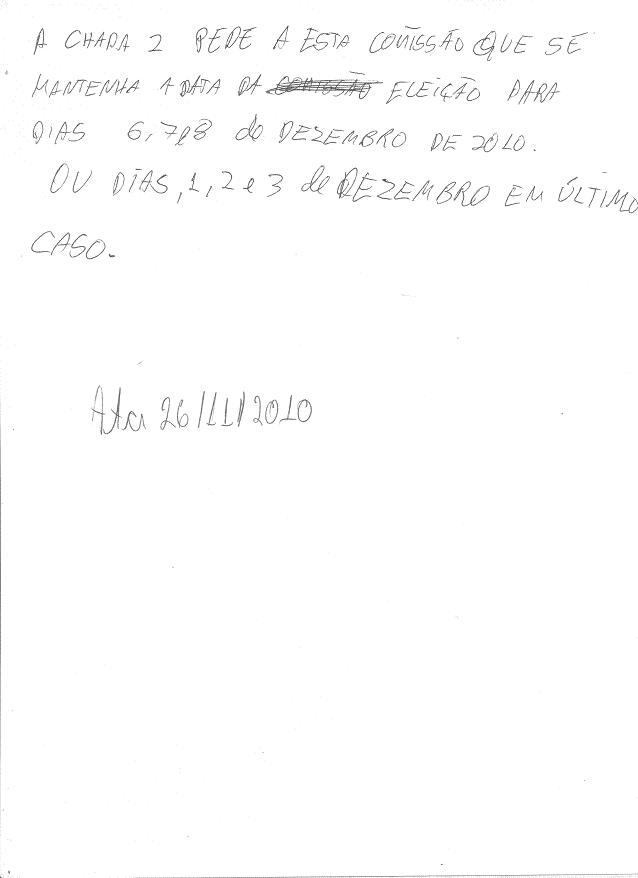 A CHAPA 2 PEDE A ESTA COMISSÃO QUE SE
MANTENHA A DATA DA COMISSÃO ELEIÇÃO PARA
DIAS 6,7e8 de DEZEMBRO DE 2010.
OU DIAS, 1, 2 e 3 de DEZEMBRO EM ÚLTIMO
CASO.
Ata 26/11/2010